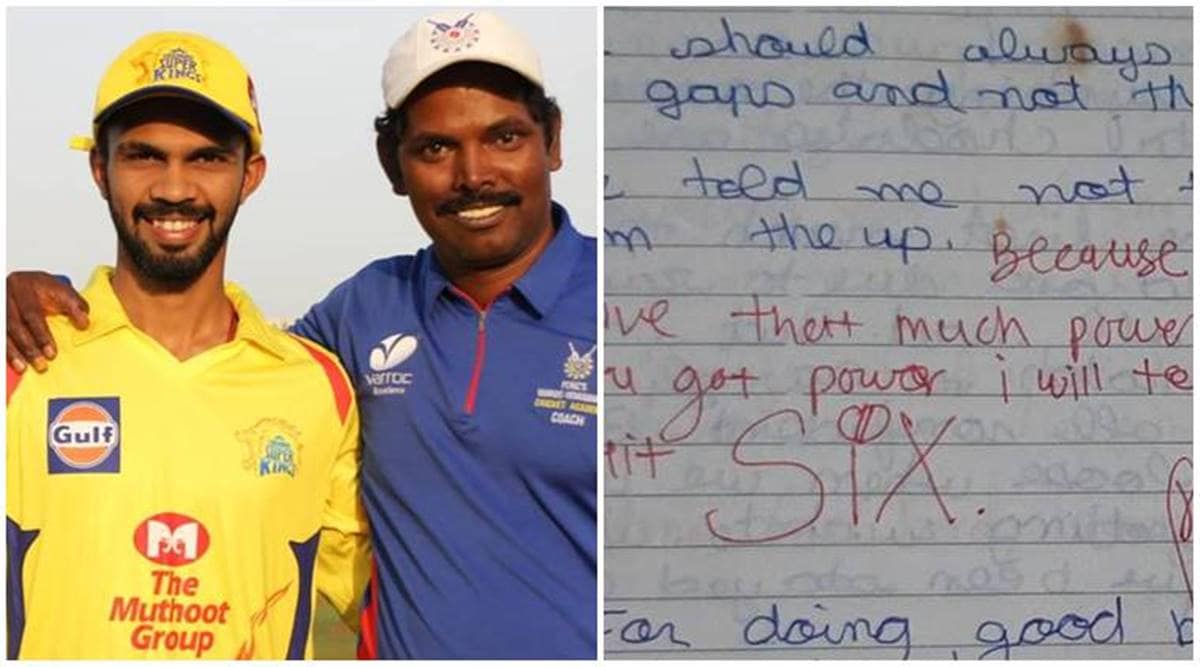 SUPER
KINGS
Gulf
SUPER
KINGS
The
Muthoot
Group
varroc
Excellence
COACH
should always
gaps and not th
told me not
m the up. Because
ve thatt much powe
u got power i will te
it SIX.
For doing good b